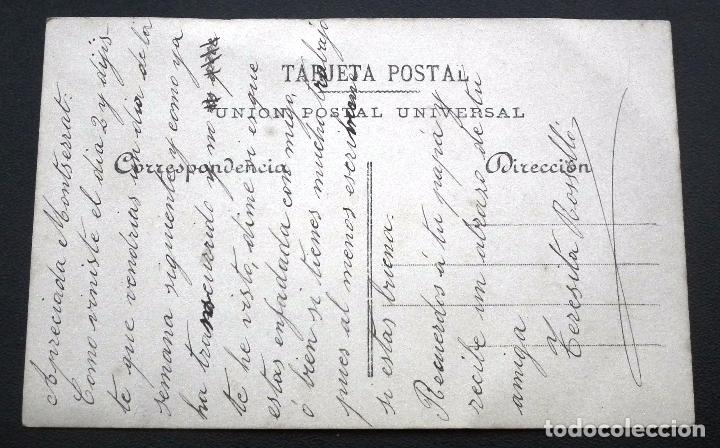 TARJETA POSTAL
UNION POSTAL UNIVERSAL
Correspondencia
Dirección
Apreciada Montserrat:
Como viniste el dia 2 y dijis
te que vendrias un dia de la
semana siguiente y como ya
ha transcurrido y no
te he visto, dime si es que
estas enfadada con migo,
ó bien si tienes mucho trabajo
pues al menos escribeme
si estas buena.
Recuerdos á tu papá y
recibe un abrazo de tu
amiga
Teresita Rosselló
todocoleccion.net